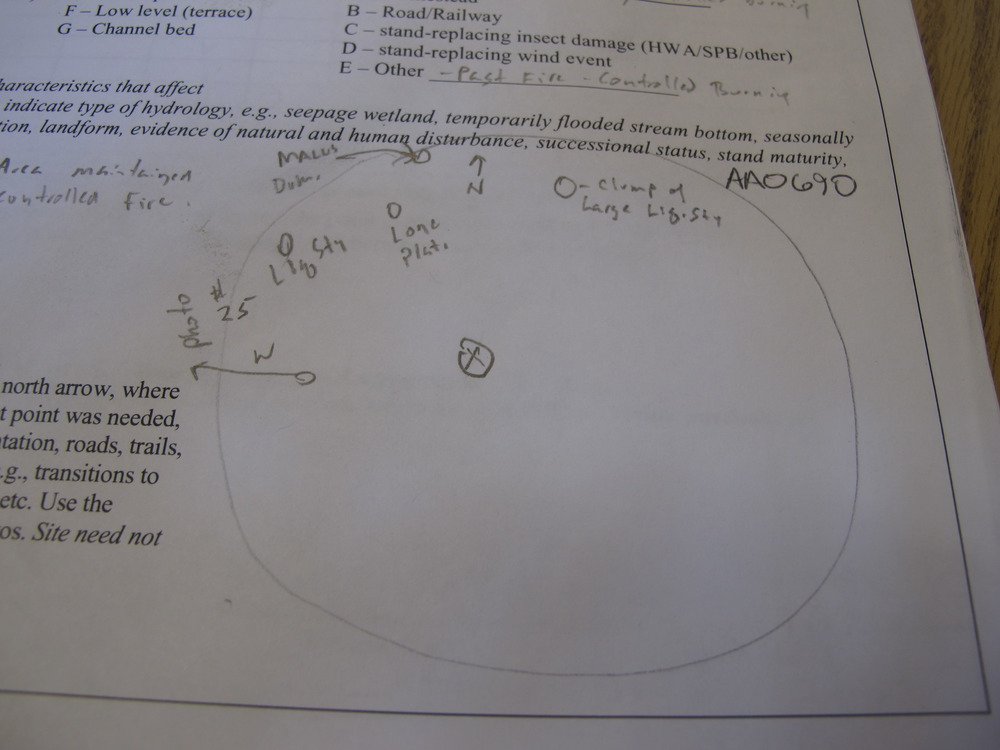 F – Low level (terrace)
G – Channel bed
B – Road/Railway
C – stand-replacing insect damage (HWA/SPB/other)
D – stand-replacing wind event
E – Other – Past Fire – Controlled Burning
haracteristics that affect
indicate type of hydrology, e.g., seepage wetland, temporarily flooded stream bottom, seasonally
tion, landform, evidence of natural and human disturbance, successional status, stand maturity,
Area maintained
controlled Fire.
Malus
N
O – Clump of
Large Liq. Sty
AA0690
Lone
Plat.
Liq Sty
Photo
#
25
W
X
north arrow, where
t point was needed,
tation, roads, trails,
.g., transitions to
etc. Use the
os. Site need not